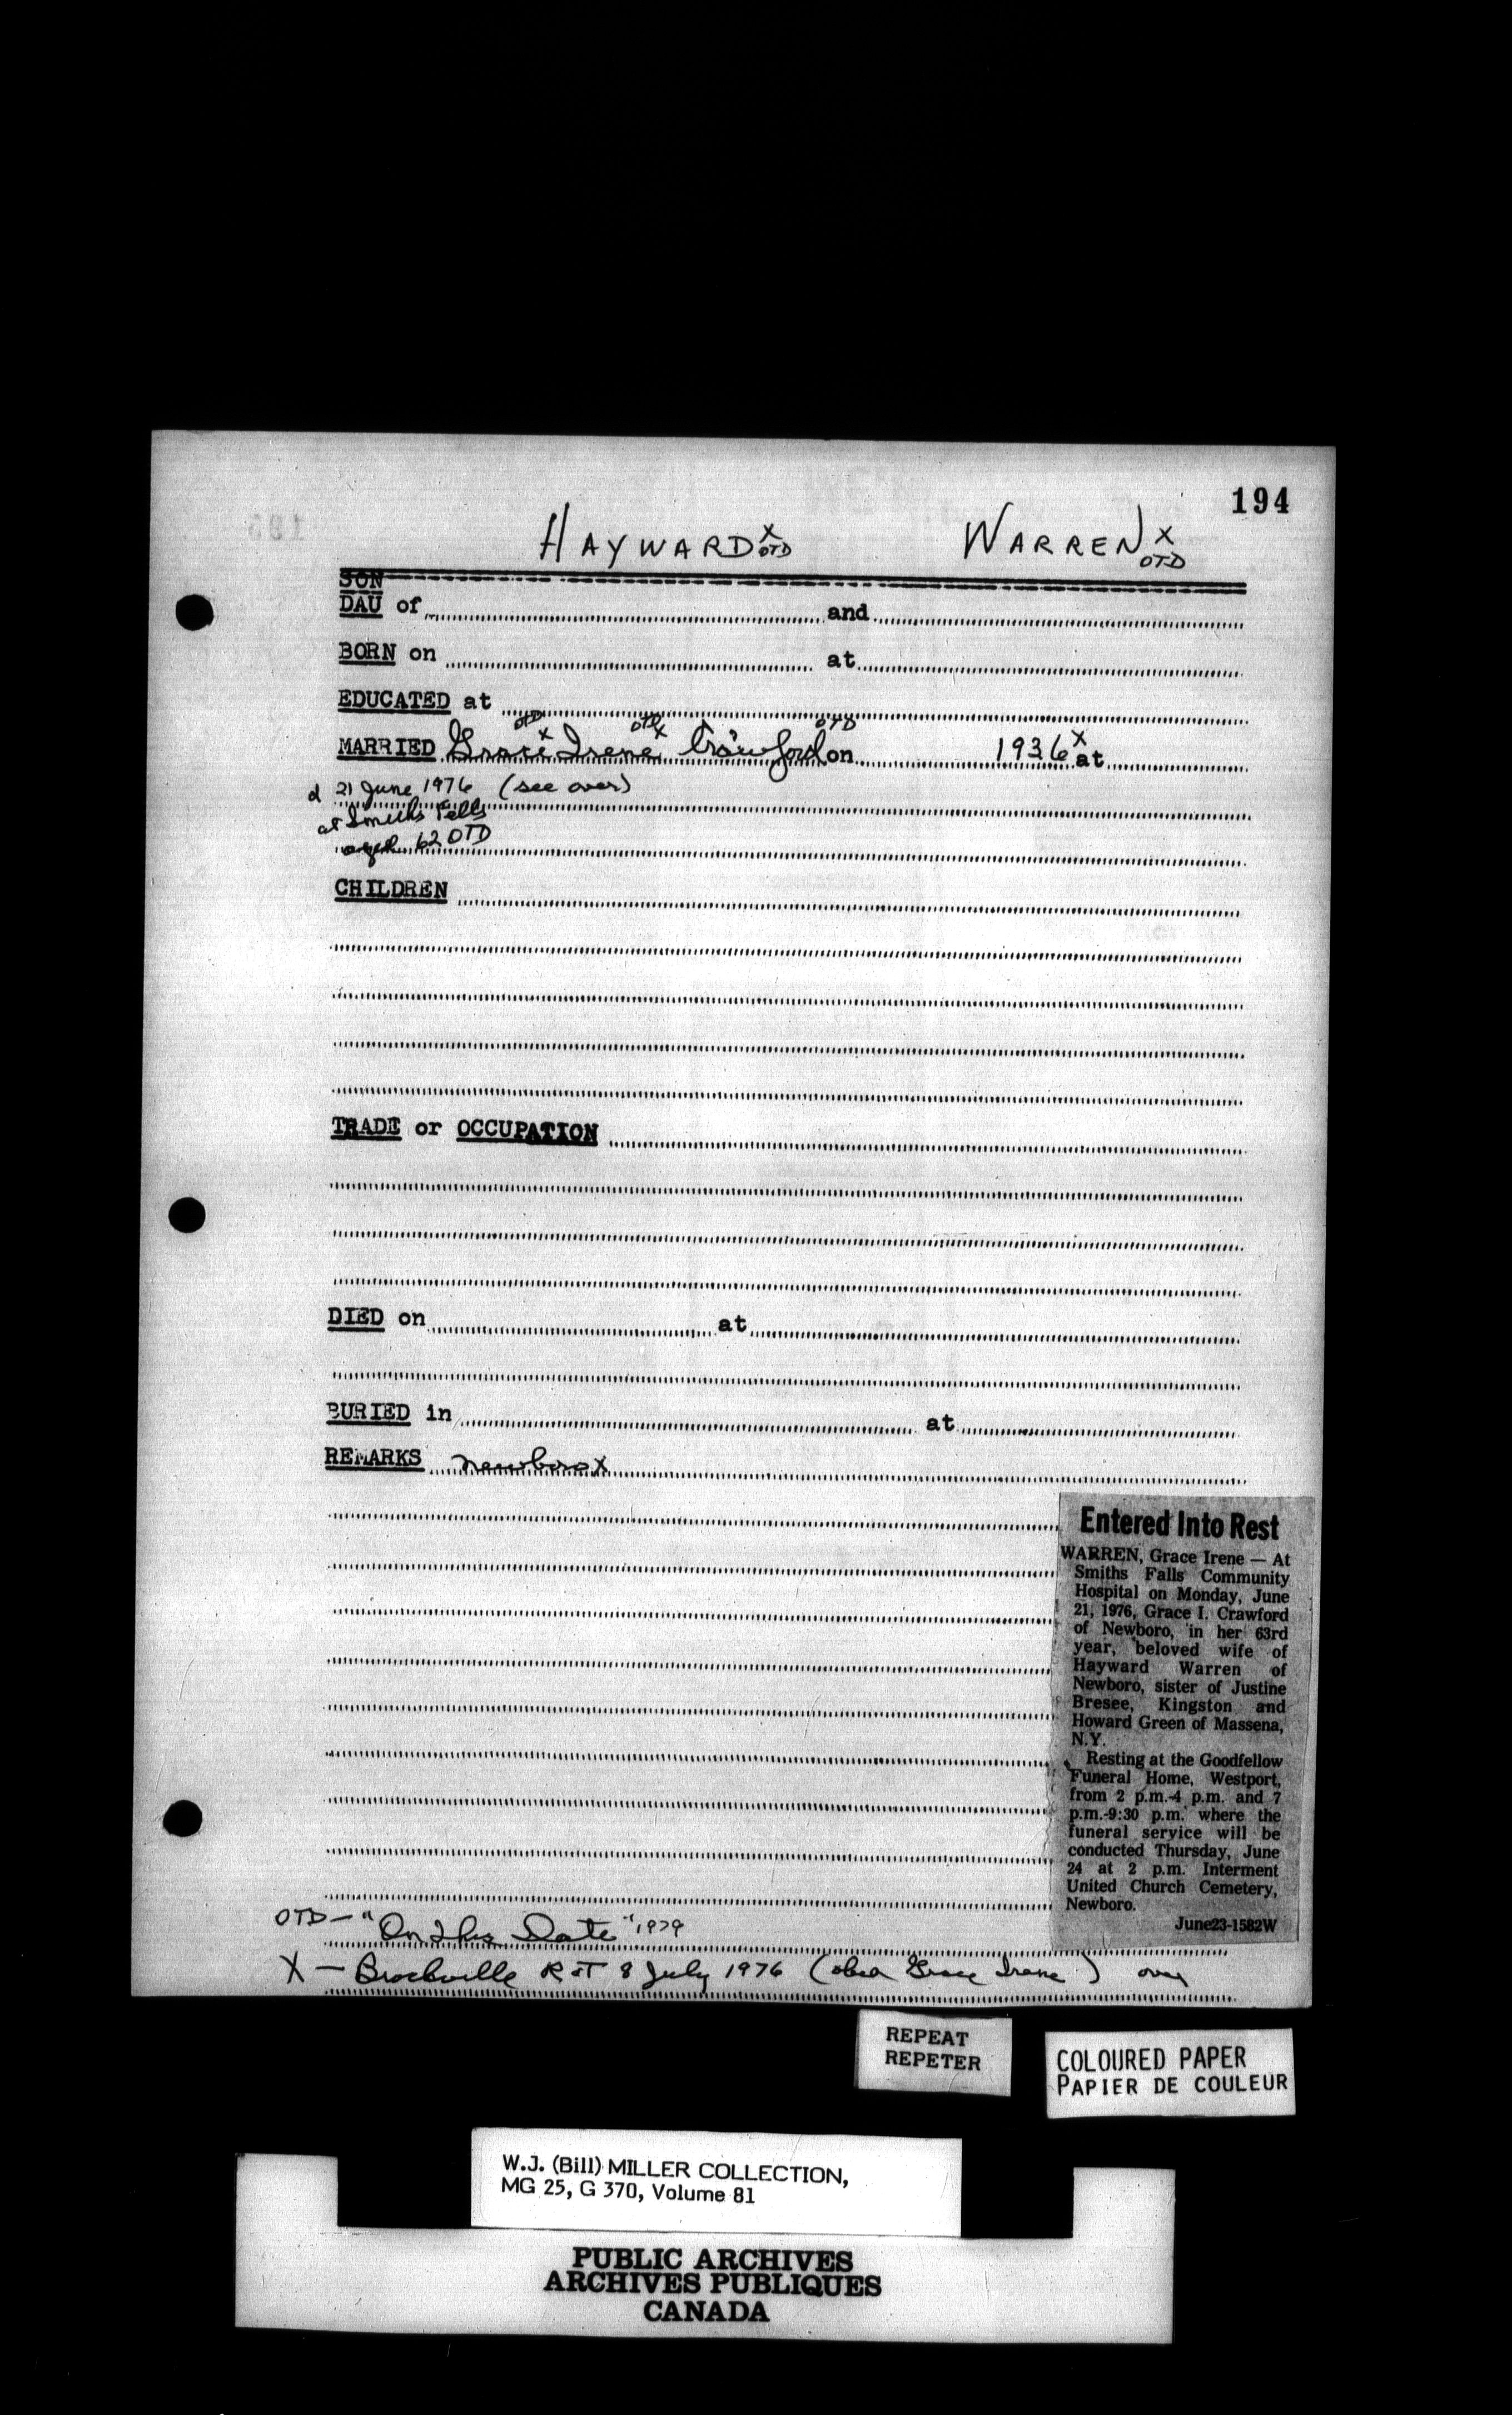 194
HAYWARD X OTD WARREN X OTD
SON
DAU of and
BORN on at
EDUCATED at
OTD OTD OTD
MARRIED Grace X Irene X Crawford on 1936 X at
d 21 June 1976 (see over)
at Smiths Falls
aged 62 OTD
CHILDREN
TRADE or OCCUPATION
DIED on at
BURIED in at
REMARKS Newboro X
Entered Into Rest
WARREN, Grace Irene — At
Smiths Falls Community
Hospital on Monday, June
21, 1976, Grace I. Crawford
of Newboro, in her 63rd
year, beloved wife of
Hayward Warren of
Newboro, sister of Justine
Bresee, Kingston and
Howard Green of Massena,
N.Y.
Resting at the Goodfellow
Funeral Home, Westport,
from 2 p.m.-4 p.m. and 7
p.m.-9:30 p.m. where the
funeral service will be
conducted Thursday, June
24 at 2 p.m. Interment
United Church Cemetery,
Newboro.
June23-1582W
OTD — "On This Date" 1979
X — Brockville R &T 8 July 1976 (obit Grace Irene) over
REPEAT
REPETER
COLOURED PAPER
PAPIER DE COULEUR
W.J. (Bill) MILLER COLLECTION,
MG 25, G 370, Volume 81
PUBLIC ARCHIVES
ARCHIVES PUBLIQUES
CANADA